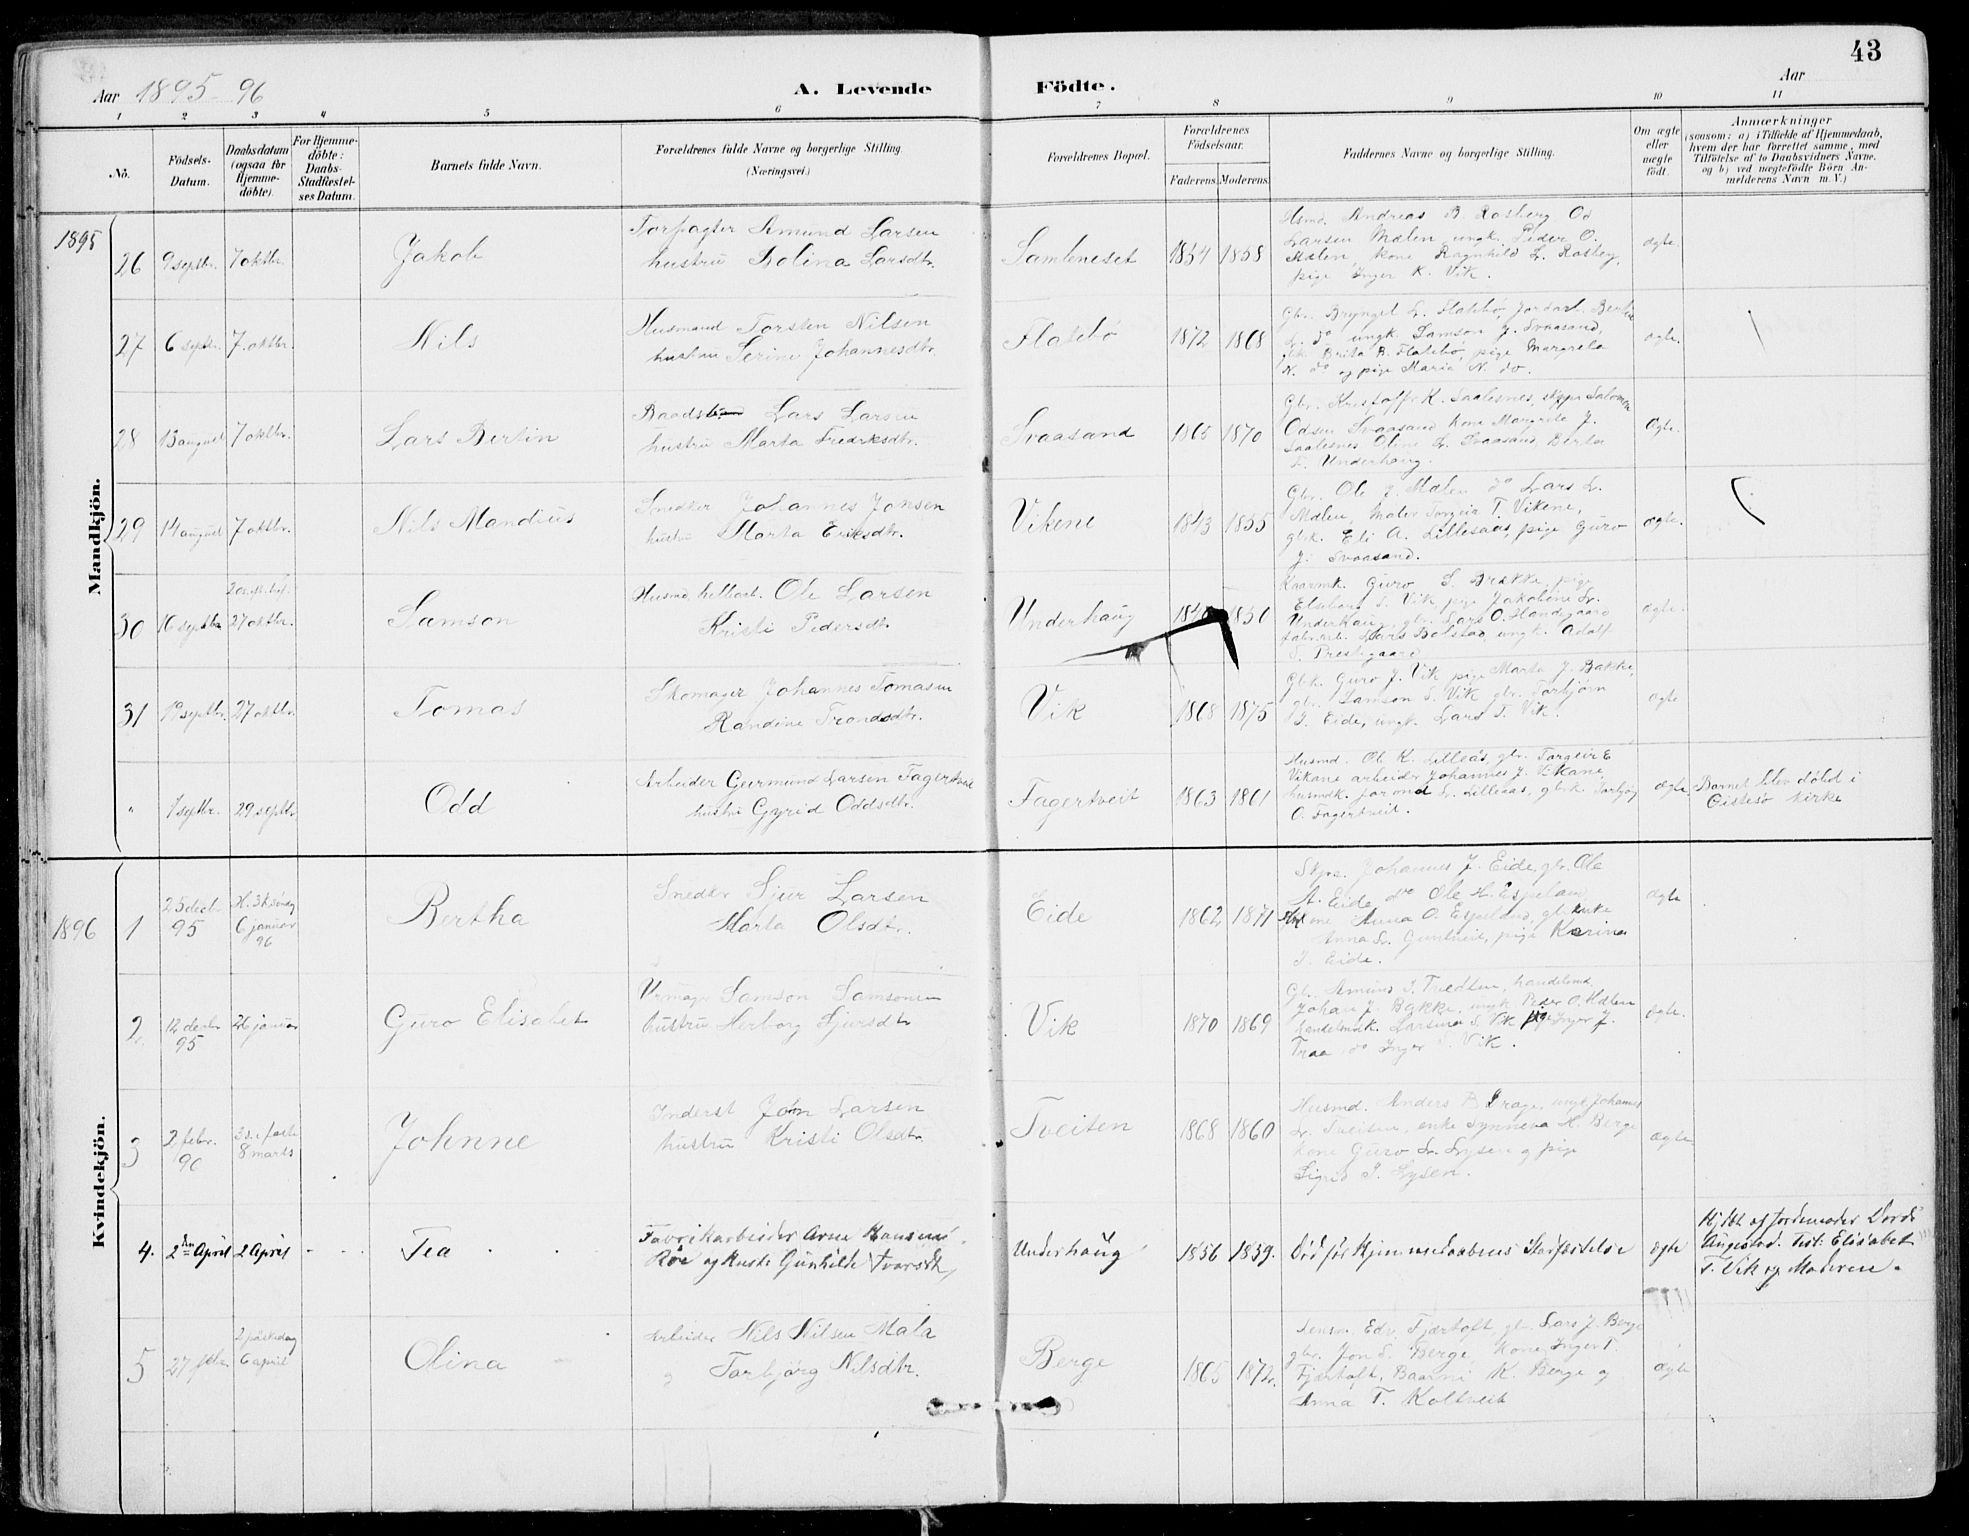 43
Aar 1895-96
A. Levende
Födte.
Aar
1 2 3 4 5 6 7 8 9 10 11
No.
Födsels-
Datum.
Daabsdatum
(ogsaa før
Hjemme-
döbte).
For Hjemme-
döbte:
Daabs-
Stadfæstel-
ses Datum.
Barnets fulde Navn.
Forældrenes fulde Navne og borgerlige Stilling.
(Næringsvei.)
Forældrenes Bopæl.
Forældrenes
Födselsaar.
Faderens. Moderens.
Faddernes Navne og borgerlige Stilling.
Om ægte
eller
uægte
födt.
Anmærkninger
(saasom: a) i Tilfælde af Hjemmedaab,
hvem der har forrettet samme, med
Tilföielse af to Daabsvidners Navne,
og b) ved uægtefödte Börn An-
melderens Navn m. V.)
Mandkjön.
1895
26 9 septbr. 7 oktbr. Jakob
Forpagter Amund Larsen
hustru Bolina Larsdtr.
Samleneset 1854 1858
Husmd. Andreas B Rosberg Od
Larsen Mælen ungk. Peder O.
Mælen, kone Ragnhild L. Rosberg,
pige Inger K. Vik.
ægte.
27 6 septr. 7. oktbr. Nils
Husmand Torsten Nilsen
hustru Serine Johannesdtr.
Flatebø 1872 1868
Gbr. Bryngel L. Flatebø,
L. do ungk. Samson J. Svaasand,
gbk. Brita B. Flatebø, pige Margreta
N. do og pige Maria N. do.
ægte.
28 13 august 7 oktbr. Lars Bertin
Lars Larsen
hustru Marta Fredriksdtr.
Svaasand 1865 1870
Gbr. Kristoffer K. Saalesnes, skypr Salomon
Odsen Svaasand kone Margrete J.
Saalesnes Oline L. Svaasand, Berta
L. Underhaug.
Ægte.
29 14 august 7 oktbr. Nils Mandius
Snedker Johannes Jonsen
hustru Marta Eriksdtr.
Vikene 1843 1855
Gbr. Ole J. Mælen do Lars L.
Mælen, Maler Torgeir T. Vikene,
gbk. Eli A. Lillesaas, pige Guro
J. Svaasand.
ægte.
30 16 septbr 27 oktbr. Samson
Husmd. Ole Larsen
Kristi Pedersdtr.
Underhaug 1850
Kaarmk. Guro S. Brække, pige
S. Vik, pige Jakobine L.
Underhaug, gbr. Lars O. Handgaard
Lars Bolstad, ungk. Adolf
S. Prestegaard
ægte.
31 septbr. 27 oktbr. Tomas
Skomager Johannes Tomasen
Randine Trondsdtr.
Vik 1868 1875
Gbk. Guro J. Vik pige Marta J. Bakke,
gbr. Samson S. Vik gbr. Torbjörn
J. Eide, ungk. Lars T. Vik.
ægte
" 1 septbr. 29 septbr Odd
Arbeider Geirmund Larsen Fagertveit
hustru Gyrid Oddsdtr.
Fagertveit 1863 1861
Husmd. Ole K. Lilleås, gbr. Torgeir E
Vikane arbeider Johannes J. Vikane,
husmdk. Jorond L. Lilleaas, gbrk Torbjøg
O. Fagertveit.
ægte. Barnet blev døbt i
Øistesø kirke
Kvindekjön.
1896
1 25 decbr.
95
H. 3k. søndg
6 januar
96
Bertha
Snedker Sjur Larsen
Marta Olsdtr.
Eide 1862 1871
Skpr. Johannes J. Eide, gbr. Ole
A. Eide do Ole H. Espeland,
kone Anna O. Espeland, gbr. enke
Anna L. Guntveit, pige Karina
J. Eide.
Ægte
2. 12 decbr
95
26 januar
Guro Elisabet
Urmager Samson Samsonsen
hustru Herborg Sjursdtr
Vik 1870 1869
Gbr. Amund J. Tvedten, handelsmd.
Johan J. Bakke, ungk. Peder O. Mælen
handelsmdk. Larsina S. Vik pige Inger J.
Traa do Inger S. Vik.
Ægte.
3 2 febr.
96
3 s. i faste
8 marts
Johnne
Inderst Jon Larsen
hustru Kristi Olsdtr.
Tveiten 1868 1860
Husmd. Anders B. Drage, ungk Johannes
L. Tveiten, enke Synneva K. Berge
kone Guro L. Lysen og pige
Sigrid J. Lysen.
Ægte
4. 2den April 2 April Tea
Favrikarbeider Arne Hansen
Röe og Kuste Gunhilde Ivarsdtr
Underhaug 1856 1859. Död før Hjemmedaabens Stadfæstelse ægte
Hj. dbt af Jordemoder Dordi
Augestad. Test: Elisabet
T. Vik og Moderen.
5 27 febr.
2 påskedag
6 april
Olina
Arbeider Nils Nilsen Mala
og Torbjörg Nilsdtr.
Berge 1865 1872.
Lensm. Edv. Fjærtoft, gbr. Lars J. Berge
gbr. Jon S. Berge, kone Inger T.
Fjærtoft, Baarni K. Berge og
Anna T. Koltveit
Ægte